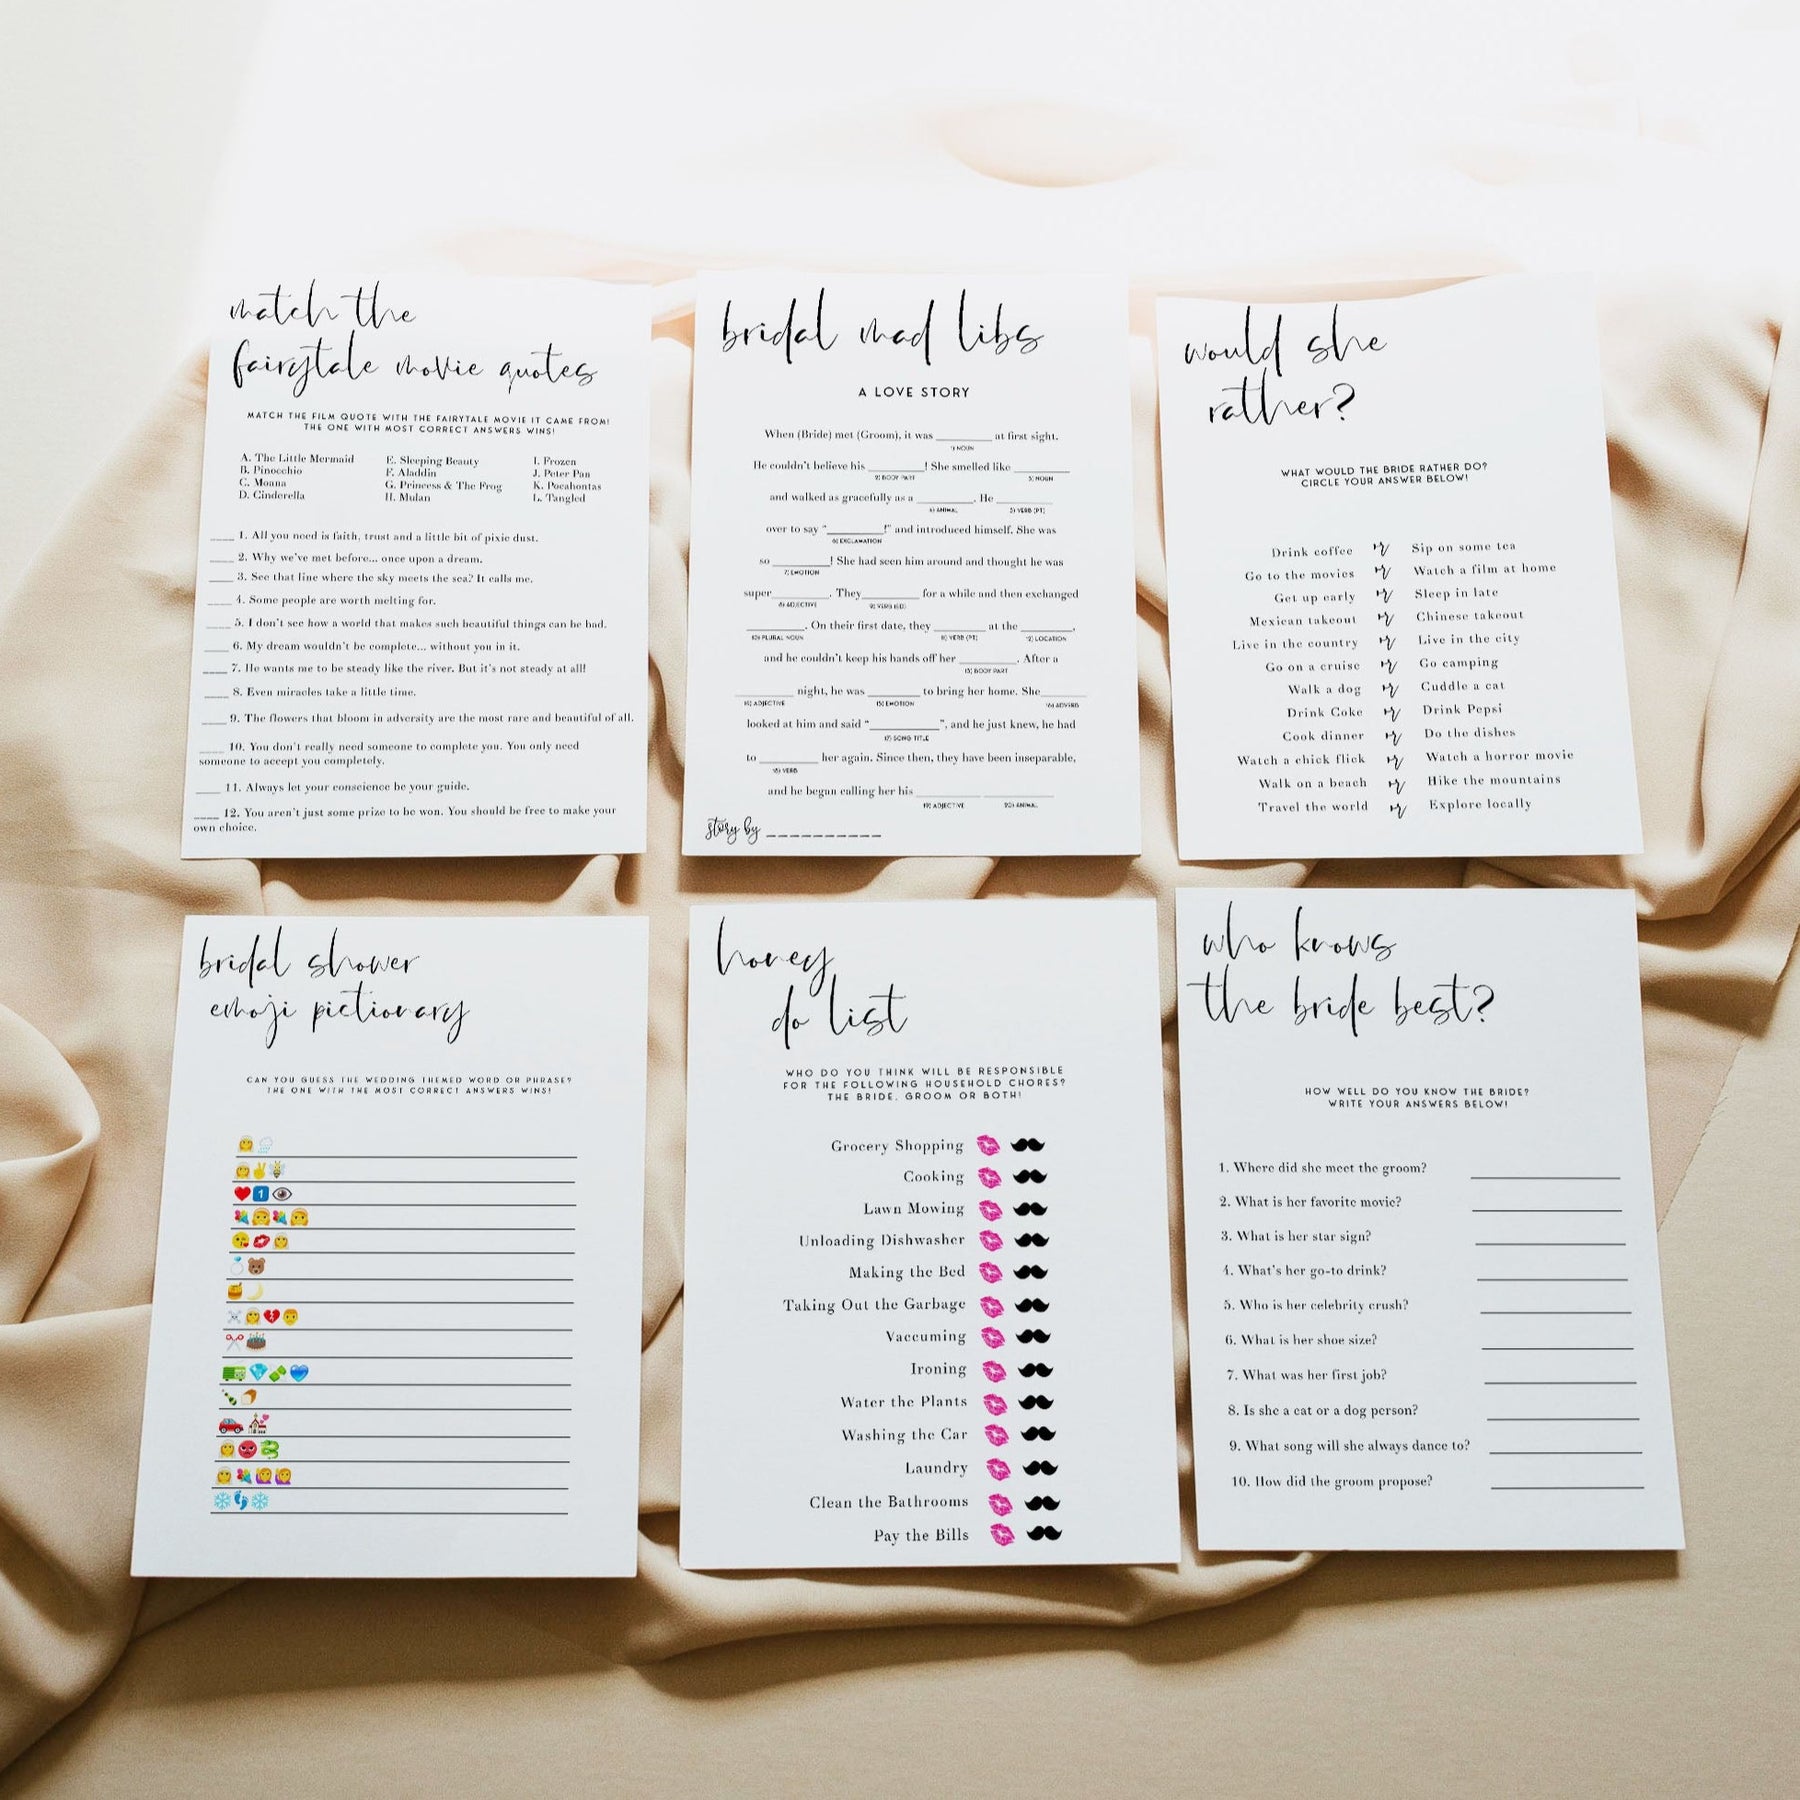 match the
fairytale movie quotes
MATCH THE FILM QUOTE WITH THE FAIRYTALE MOVIE IT CAME FROM!
THE ONE WITH MOST CORRECT ANSWERS WINS!
A. The Little Mermaid
B. Pinocchio
C. Moana
D. Cinderella
E. Sleeping Beauty
F. Aladdin
G. Princess & The Frog
H. Mulan
I. Frozen
J. Peter Pan
K. Pocahontas
L. Tangled
____ 1. All you need is faith, trust and a little bit of pixie dust.
____ 2. Why we've met before... once upon a dream.
____ 3. See that line where the sky meets the sea? It calls me.
____ 4. Some people are worth melting for.
____ 5. I don't see how a world that makes such beautiful things can be bad.
____ 6. My dream wouldn't be complete... without you in it.
____ 7. He wants me to be steady like the river. But it's not steady at all!
____ 8. Even miracles take a little time.
____ 9. The flowers that bloom in adversity are the most rare and beautiful of all.
____ 10. You don't really need someone to complete you. You only need
someone to accept you completely.
____ 11. Always let your conscience be your guide.
____ 12. You aren't just some prize to be won. You should be free to make your
own choice.
bridal mad libs
A LOVE STORY
When (Bride) met (Groom), it was ________ at first sight.
1) NOUN
He couldn't believe his ________! She smelled like ________
2) BODY PART 3) NOUN
and walked as gracefully as a ________. He ________
4) ANIMAL 5) VERB (PT)
over to say "________!" and introduced himself. She was
6) EXCLAMATION
so ________! She had seen him around and thought he was
7) EMOTION
super________. They________ for a while and then exchanged
8) ADJECTIVE 9) VERB (ED)
________. On their first date, they ________ at the ________,
10) PLURAL NOUN 11) VERB (PT) 12) LOCATION
and he couldn't keep his hands off her ________. After a
13) BODY PART
________ night, he was ________ to bring her home. She________
14) ADJECTIVE 15) EMOTION 16) ADVERB
looked at him and said "________", and he just knew, he had
17) SONG TITLE
to ________ her again. Since then, they have been inseparable,
18) VERB
and he began calling her his ________ ________
19) ADJECTIVE 20) ANIMAL
story by __________
would she
rather?
WHAT WOULD THE BRIDE RATHER DO?
CIRCLE YOUR ANSWER BELOW!
Drink coffee or Sip on some tea
Go to the movies or Watch a film at home
Get up early or Sleep in late
Mexican takeout or Chinese takeout
Live in the country or Live in the city
Go on a cruise or Go camping
Walk a dog or Cuddle a cat
Drink Coke or Drink Pepsi
Cook dinner or Do the dishes
Watch a chick flick or Watch a horror movie
Walk on a beach or Hike the mountains
Travel the world or Explore locally
bridal shower
emoji pictionary
CAN YOU GUESS THE WEDDING THEMED WORD OR PHRASE?
THE ONE WITH THE MOST CORRECT ANSWERS WINS!
honey
do list
WHO DO YOU THINK WILL BE RESPONSIBLE
FOR THE FOLLOWING HOUSEHOLD CHORES?
THE BRIDE, GROOM OR BOTH!
Grocery Shopping
Cooking
Lawn Mowing
Unloading Dishwasher
Making the Bed
Taking Out the Garbage
Vaccuming
Ironing
Water the Plants
Washing the Car
Laundry
Clean the Bathrooms
Pay the Bills
who knows
the bride best?
HOW WELL DO YOU KNOW THE BRIDE?
WRITE YOUR ANSWERS BELOW!
1. Where did she meet the groom?
2. What is her favorite movie?
3. What is her star sign?
4. What's her go-to drink?
5. Who is her celebrity crush?
6. What is her shoe size?
7. What was her first job?
8. Is she a cat or a dog person?
9. What song will she always dance to?
10. How did the groom propose?